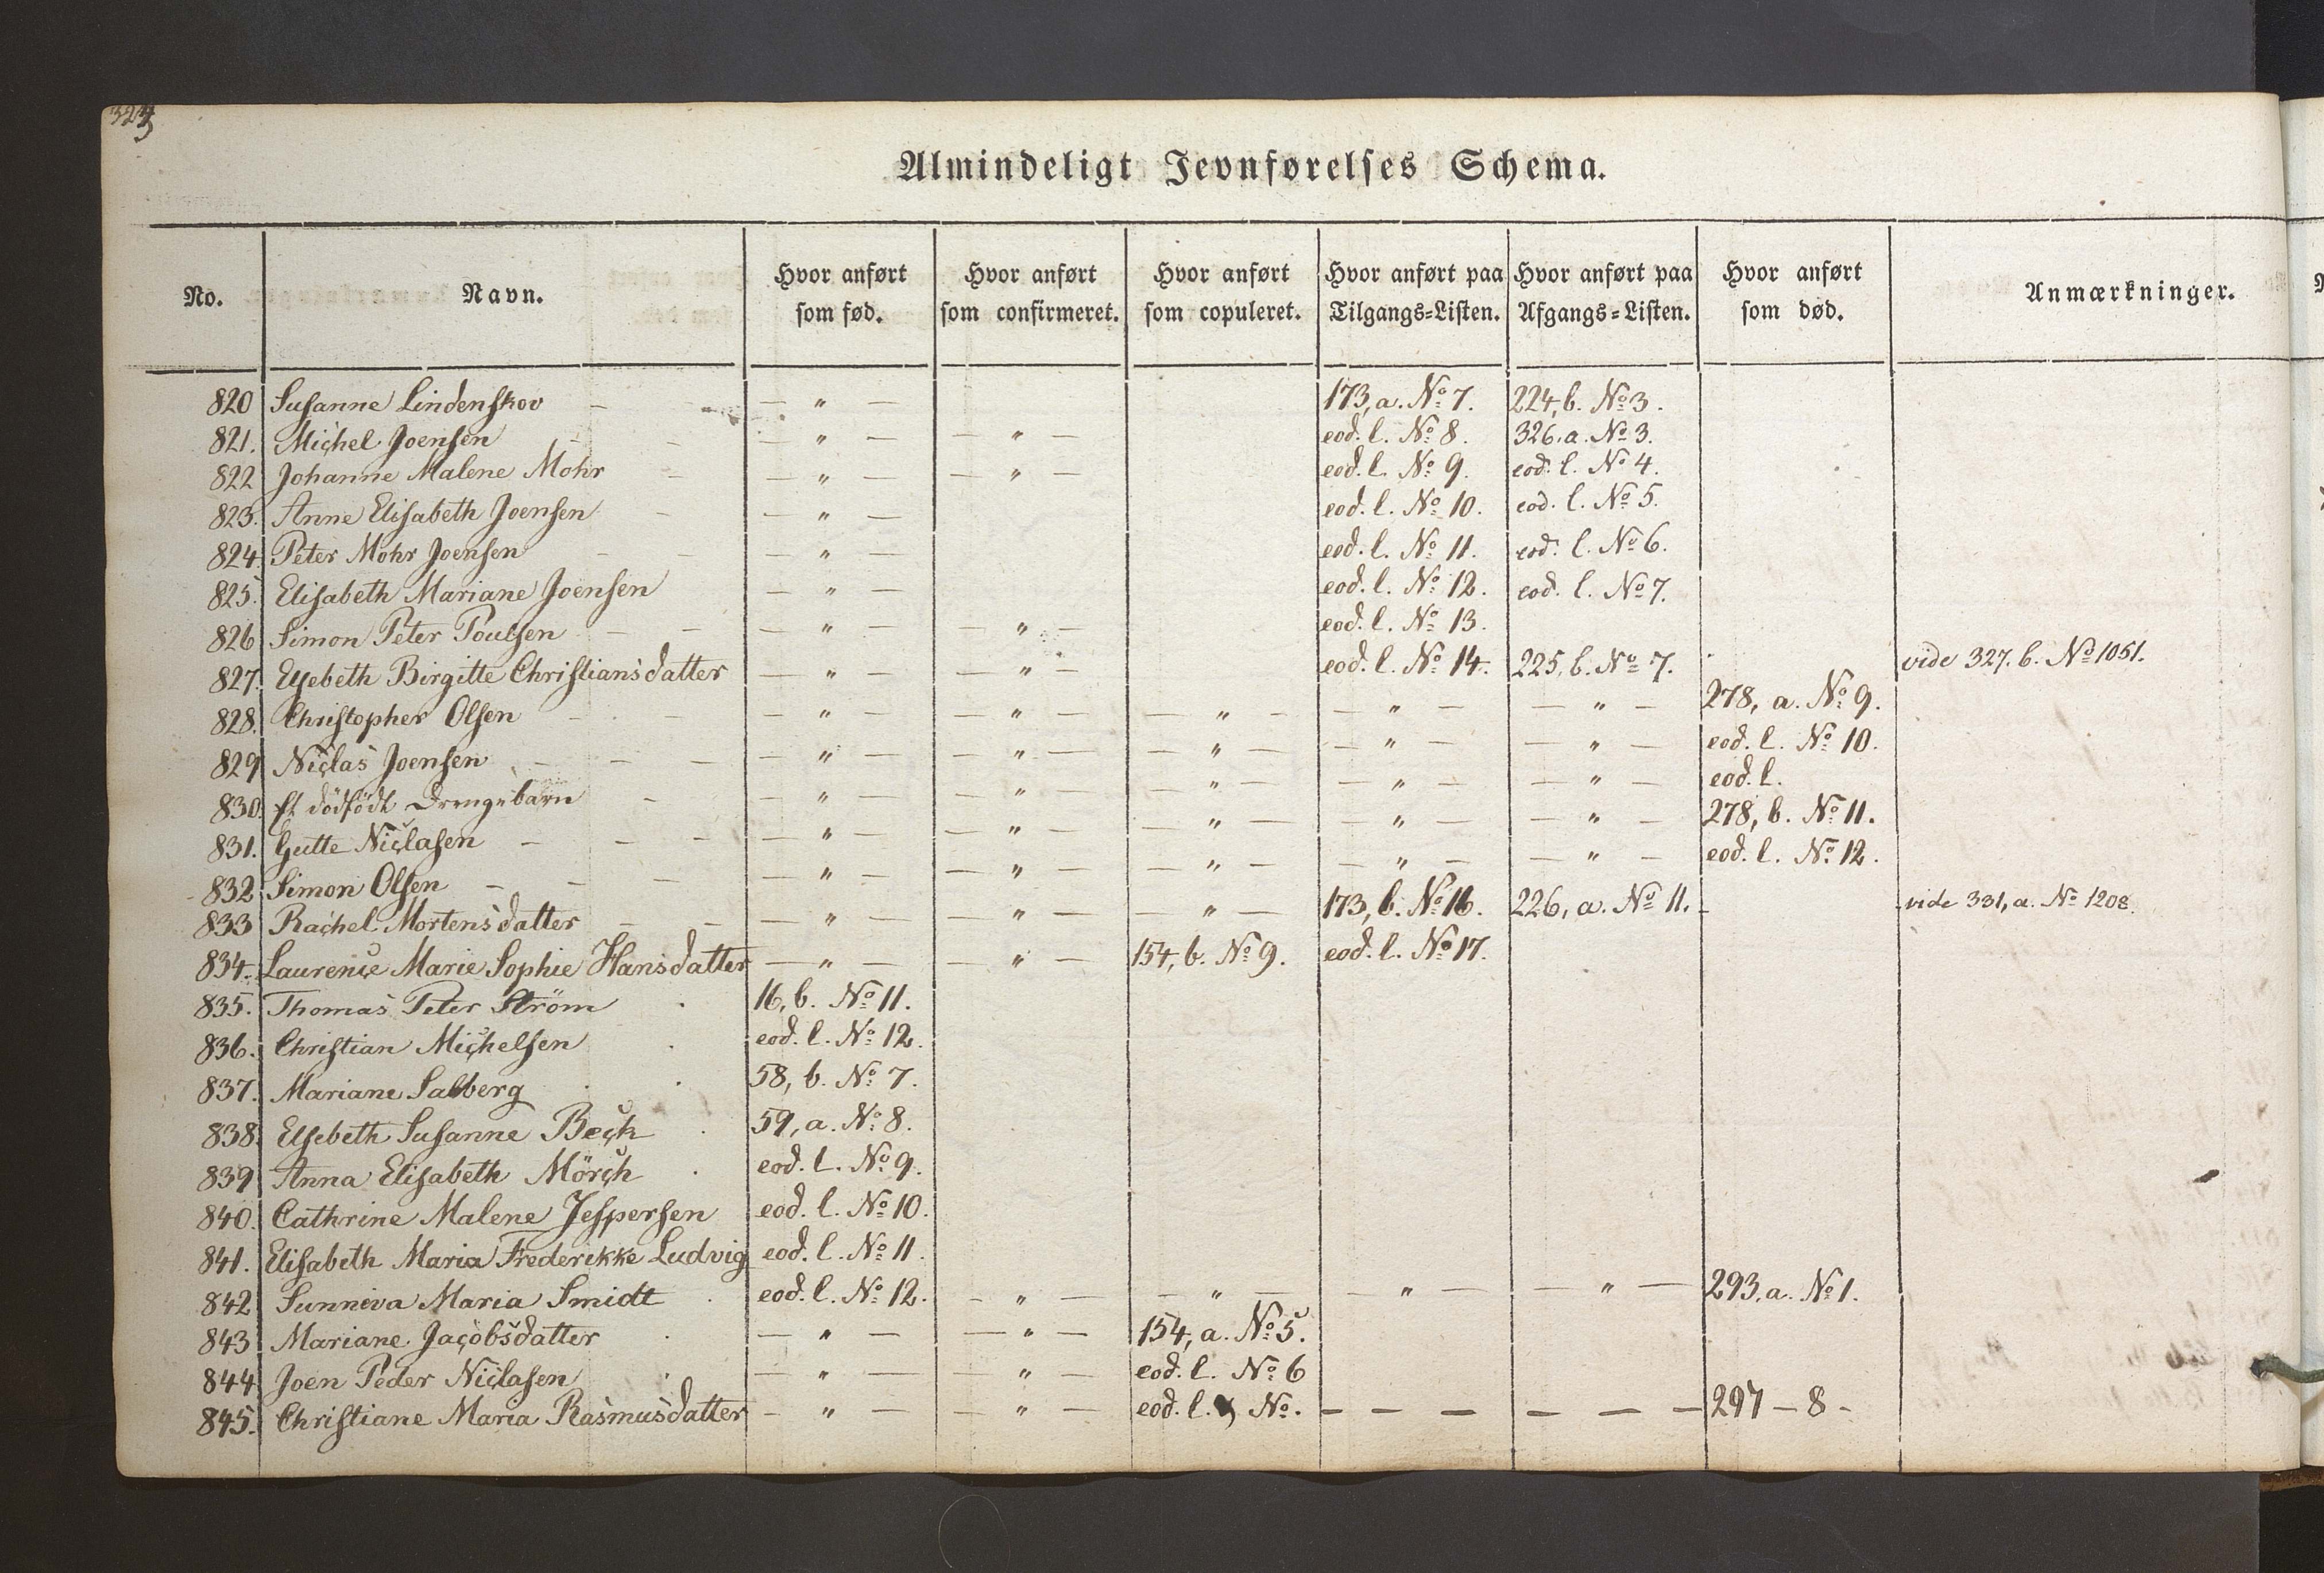 Almindeligt Jevnførelses Schema.
No. Navn. Hvor anført som fød. Hvor anført som confirmeret. Hvor anført som copuleret. Hvor anført paa Tilgangs=Listen. Hvor anført paa Afgangs=Listen. Hvor anført som død. Anmærkninger.
820 Susanne Lindenskov — — " — 173, a. No 7. 224, b. No 3.
821. Michel Joensen — — — " — — " — eod. l. No 8. 326. a. No 3.
822 Johanne Malene Mohr — — " — — " — eod. l. No 9. eod. l. No 4.
823. Anne Elisabeth Joensen — — " — eod. l. No 10. eod. l. No 5.
824. Peter Mohr Joensen — — — " — eod. l. No 11. eod. l. No 6.
825. Elisabeth Mariane Joensen — " — eod. l. No 12. eod. l. No 7.
826 Simon Peter Poulsen — — — " — — " — eod. l. No 13.
827. Elsebeth Birgitte Christiansdatter — " — — " — eod. l. No 14. 225, b. No 7. vide 327. b. No 1051.
828. Christopher Olsen — — — " — — " — — " — — " — — " — 278, a. No 9.
829 Niclas Joensen — — — — " — — " — — " — — " — — " — eod. l. No 10.
830. Et dödfödt Drengebarn — — " — — " — — " — — " — — " — eod. l.
831. Gutte Niclasen — — — — " — — " — — " — — " — — " — 278, b. No 11.
832 Simon Olsen — — — — " — — " — — " — — " — — " — eod. l. No 12.
833 Rachel Mortensdatter — — — " — — " — — " — 173, b. No 16. 226, a. No 11. vide 331, a. No 1208.
834. Laurence Marie Sophie Hansdatter — " — — " — 154, b. No 9. eod. l. No 17.
835. Thomas Peter Ström 16, b. No 11.
836. Christian Michelsen eod. l. No 12.
837. Mariane Salberg 58, b. No 7.
838. Elsebeth Susanne Beck 59, a. No 8.
839 Anna Elisabeth Mörch eod. l. No 9.
840. Cathrine Malene Jespersen eod. l. No 10.
841. Elisabeth Maria Frederikke Ludvig eod. l. No 11.
842 Sunneva Maria Smidt eod. l. No 12. — " — — " — — " — — " — 293, a. No 1.
843 Mariane Jacobsdatter — " — — " — 154, a. No 5.
844 Joen Peder Niclasen — " — — " — eod. l. No 6
845. Christiane Maria Rasmusdatter — " — — " — eod. l. No. — — — — — — 297 — 8 —